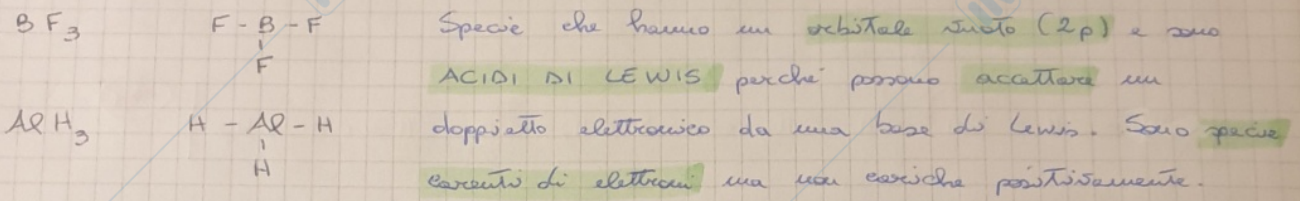 BF3 F - B - F Specie che hanno un orbitale vuoto (2p) e sono
F ACIDI DI LEWIS perché possono accettare un
AlH3 H - Al - H doppietto elettronico da una base di Lewis. Sono specie
H carenti di elettroni ma non cariche positivamente.